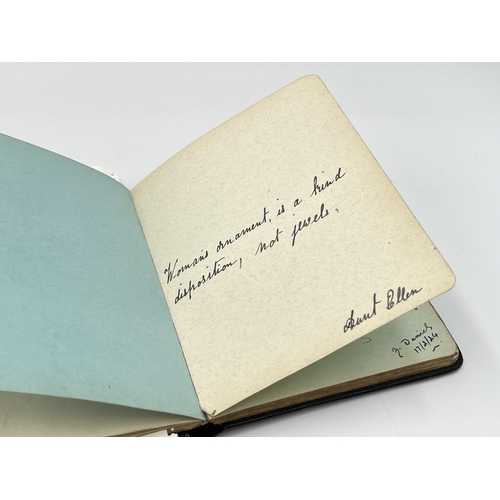 Womans ornament, is a kind
disposition, not jewels.
Aunt Ellen
Daniels
17/2/24